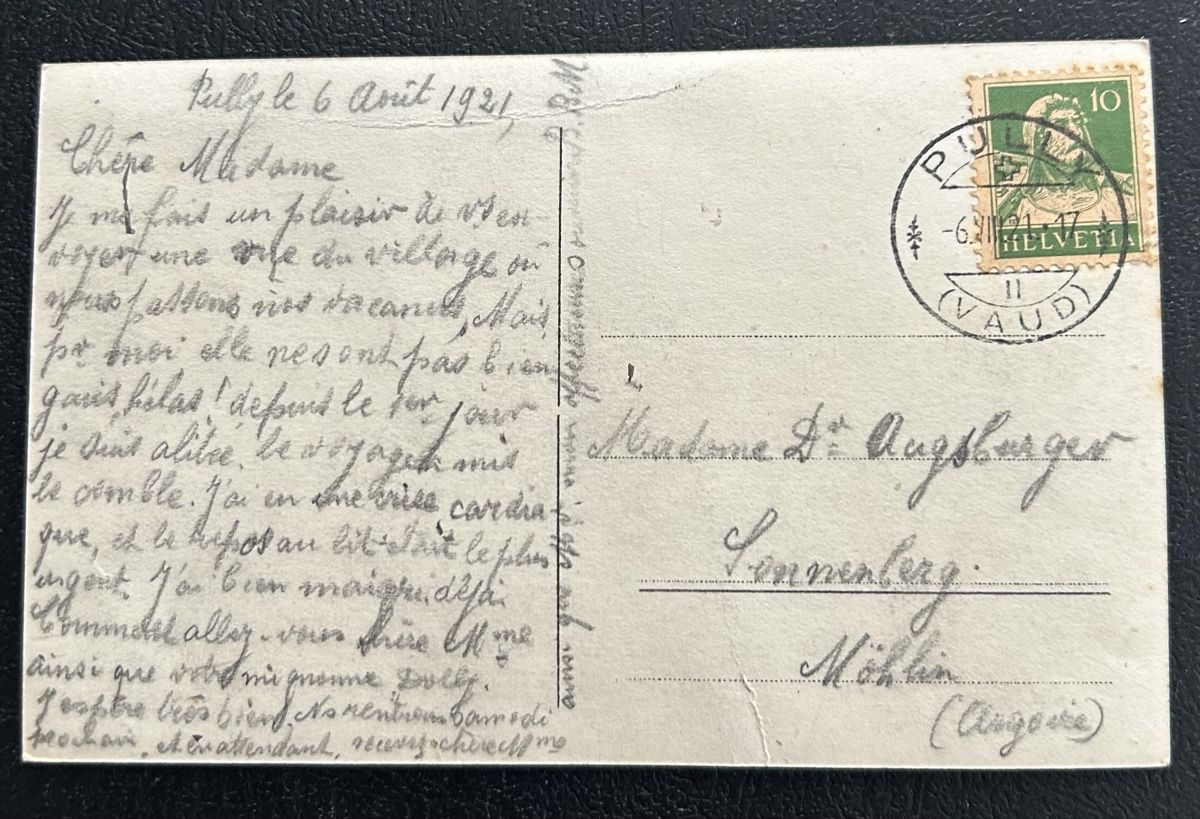 Pully le 6 Août 1921,
Chère Madame
Je me fais un plaisir de vs en-
voyer une vue du village où
nous passons nos vacances, Mais
pr moi elle ne sont pas bien
gaies, hélas! depuis le 1er jour
je suis alitée. le voyage m'a mis
le comble. J'ai eu une crise cardia-
que, et le repos au lit était le plus
urgent. J'ai bien maigri déjà.
Comment allez-vous chère Mme
ainsi que votre mignonne Dolly.
J'espère très bien. Ns rentrons samedi
prochain, et en attendant, recevez chère Mme
ainsi que mon affectueux
10
HELVETIA
PULLY
-6.VIII.21.-17
II
(VAUD)
Madame Dr Augsburger
Sonnenberg.
Möhlin
(Argovie)